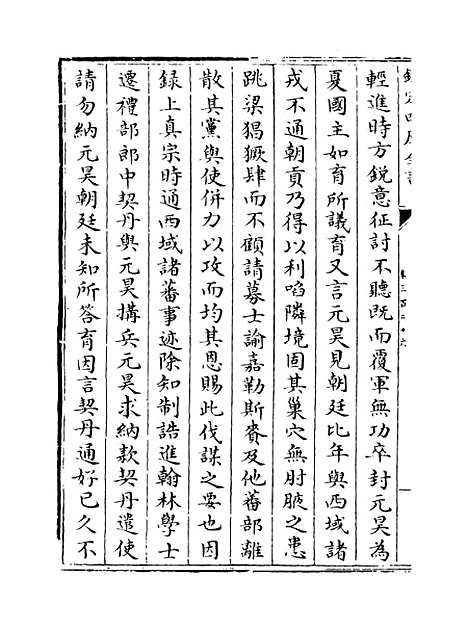 輕進時方鋭意征討不聽既而覆軍無功卒封元昊為
夏國主如育所議育又言元昊見朝廷比年與西域諸
戎不通朝貢乃得以利啗隣境固其巢穴無肘腋之患
跳梁猖獗肆而不顧請募士諭嘉勒斯賚及他蕃部離
散其黨與使併力以攻而均其恩賜此伐謀之要也因
録上真宗時通西域諸蕃事迹除知制誥進翰林學士
遷禮部郎中契丹與元昊搆兵元昊求納款契丹遣使
請勿納元昊朝廷未知所答育因言契丹通好已久不